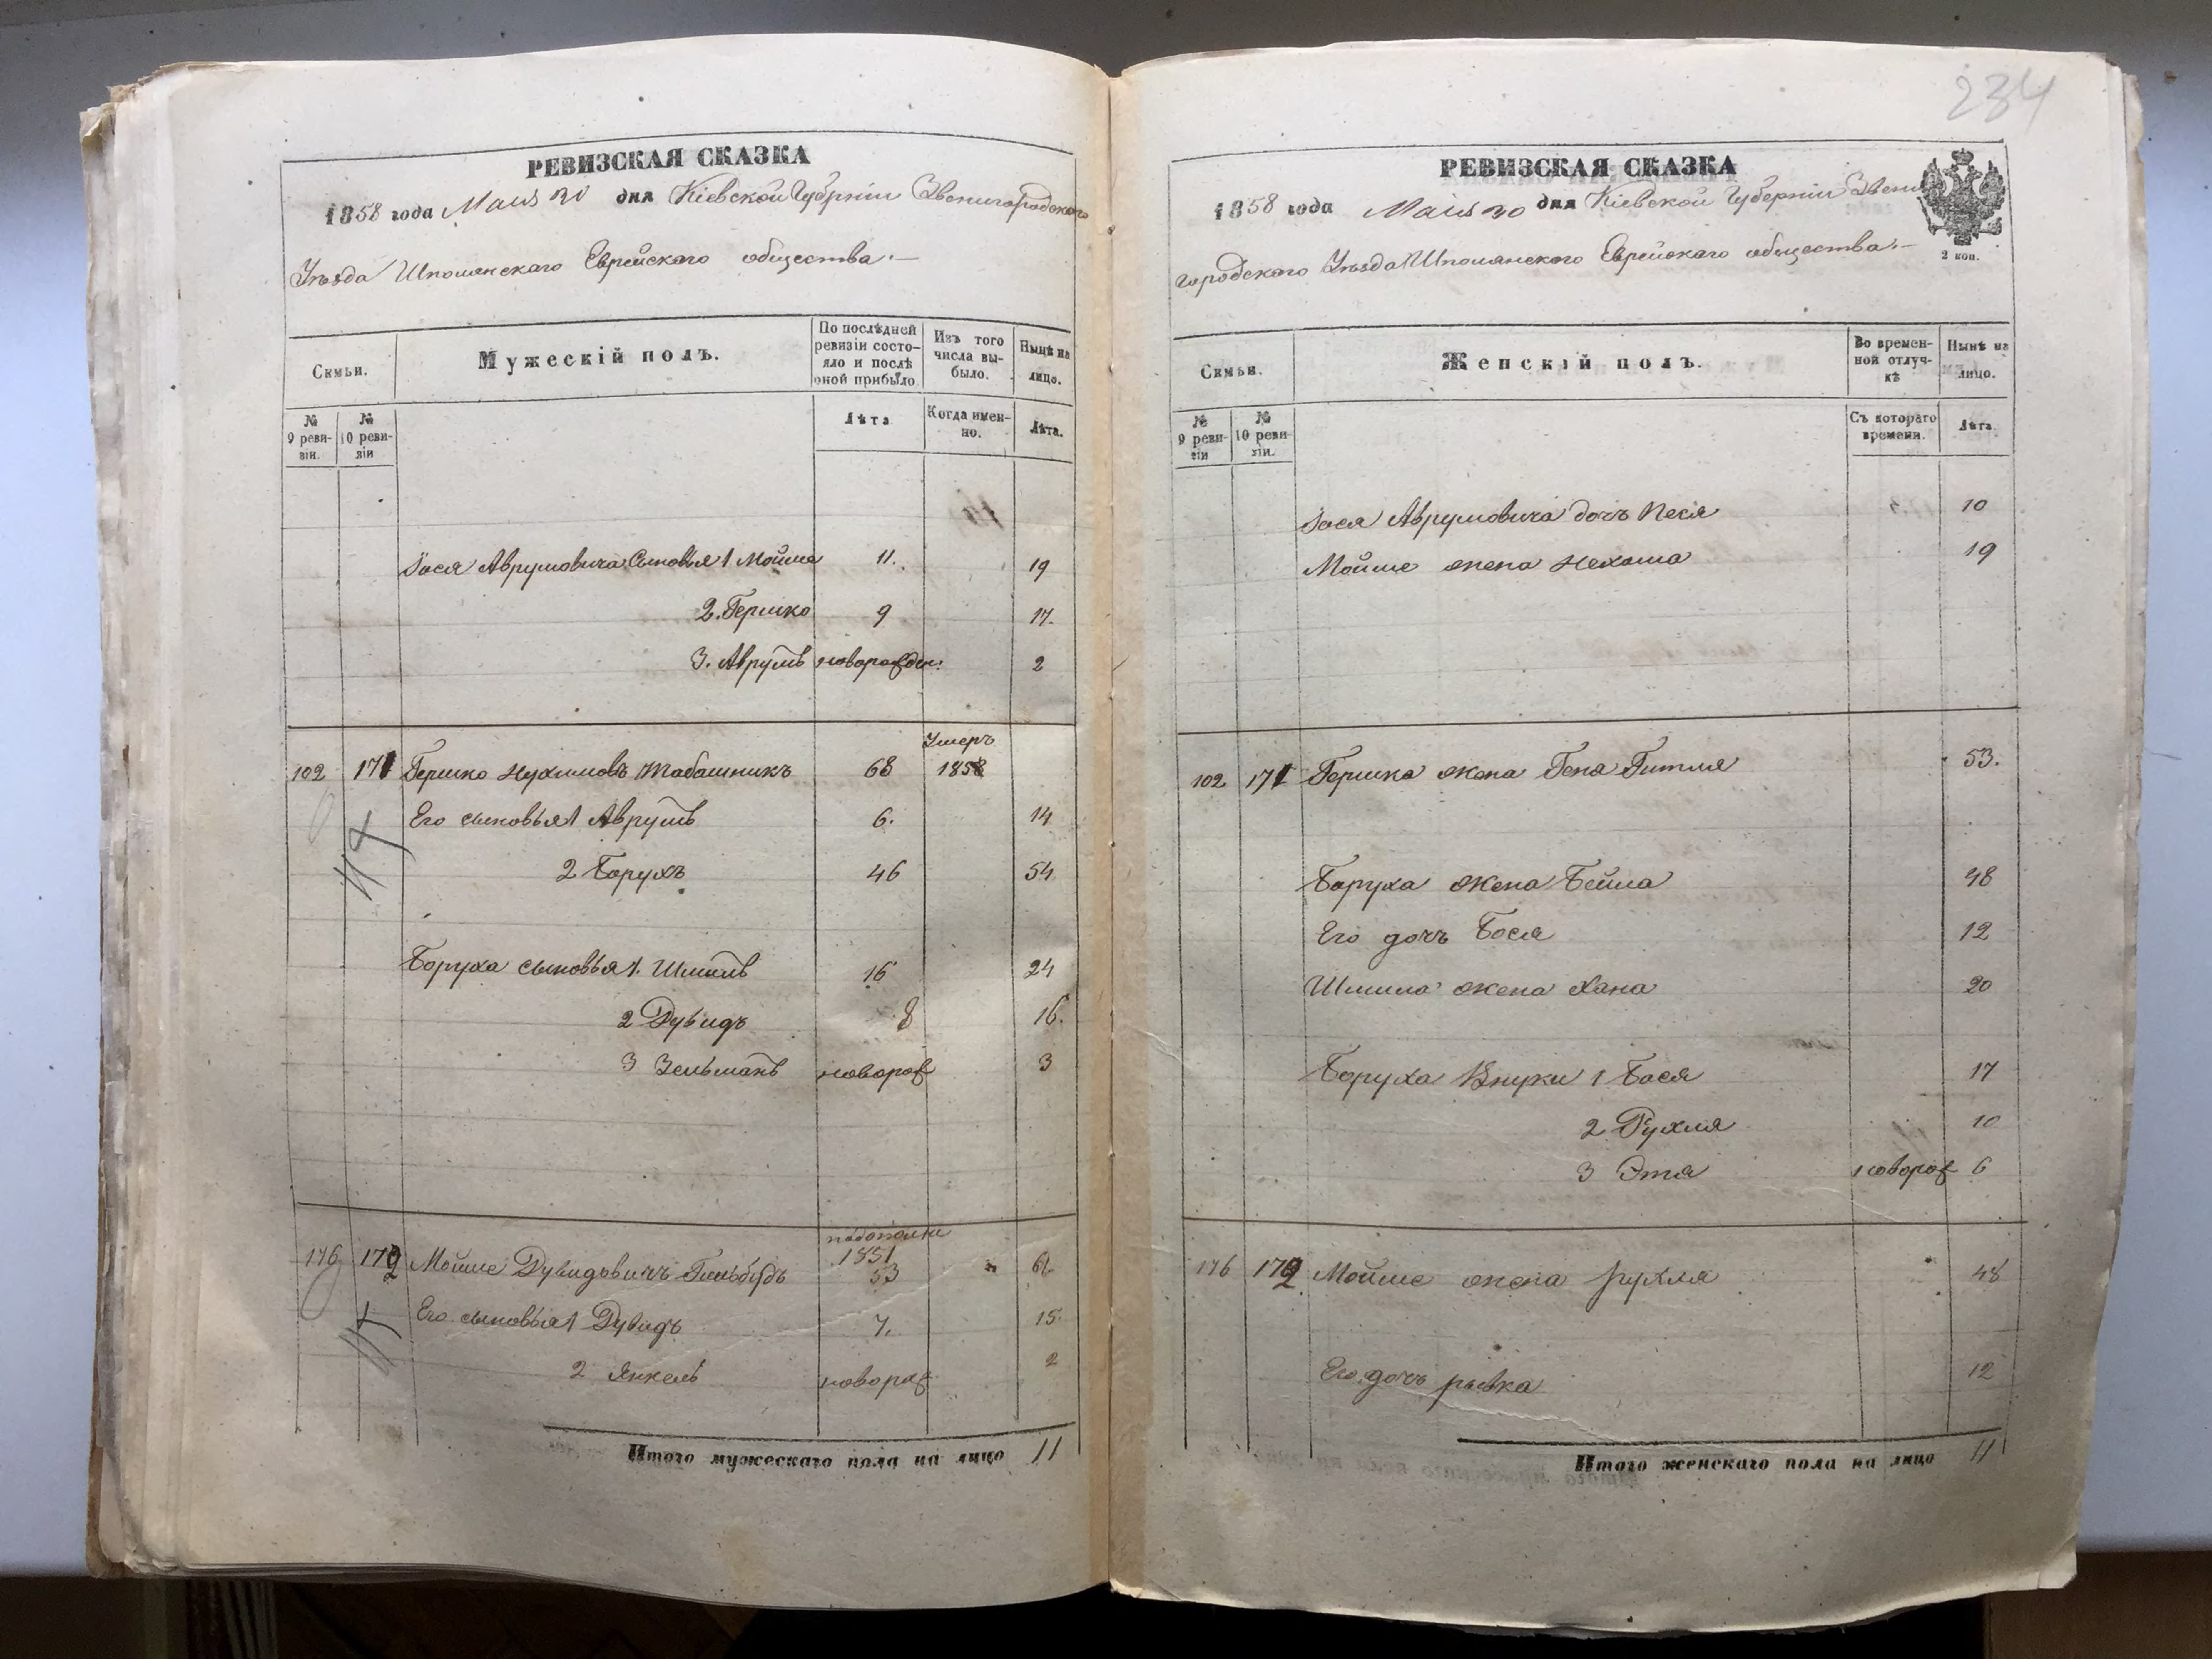 234
РЕВИЗСКАЯ СКАЗКА
1858 года Мая 30 дня Кіевской Губерніи Звенигородскаго
Уѣзда Шполянскаго Еврейскаго общества.—
Семьи.
Мужескій полъ.
По послѣдней ревизіи состояло и послѣ оной прибыло
Изъ того числа выбыло.
Нынѣ на лицо.
№ 9 ревизіи.
№ 10 ревизіи
Лѣта
Когда именно.
Лѣта.
Іося Аврумовича Сыновья 1 Мойше 11. 19
2. Гершко 9 17.
3. Аврумъ новорожден. 2
Умеръ
102 171 Гершко Нухимовъ Табашникъ 68 1858
Его сыновья 1 Аврумъ 6. 14
2 Борухъ 46 54
Боруха сыновья 1. Шмиль 16 24
2 Дувидъ 8 16.
3 Зельманъ новорож 3
1851
176 172 Мойше Дувидовичъ 53 61
Его сыновья 1 Дувидъ 7. 15.
2 Янкель новорож 2
Итого мужескаго пола на лицо 11
РЕВИЗСКАЯ СКАЗКА
1858 года Мая 30 дня Кіевской Губерніи Звени
городского Уѣзда Шполянского Еврейскаго общества.—
2 коп.
Семьи.
Женскій полъ.
Во временной отлучкѣ
Нынѣ на лицо.
№ 9 ревизіи
№ 10 ревизіи.
Съ котораго времени.
Лѣта
Іося Аврумовича дочь Песя 10
Мойше жена Нехама 19
102 171 Гершка жена Гена Гитля 53.
Боруха жена Бейла 48
Его дочь Бося 12
Шмиля жена Хана 20
Боруха Внуки 1 Бася 17
2 Рухля 10
3 Этя новорож 6
176 172 Мойше жена рухля 48
Его дочь рывка 12
Итого женскаго пола на лицо 11